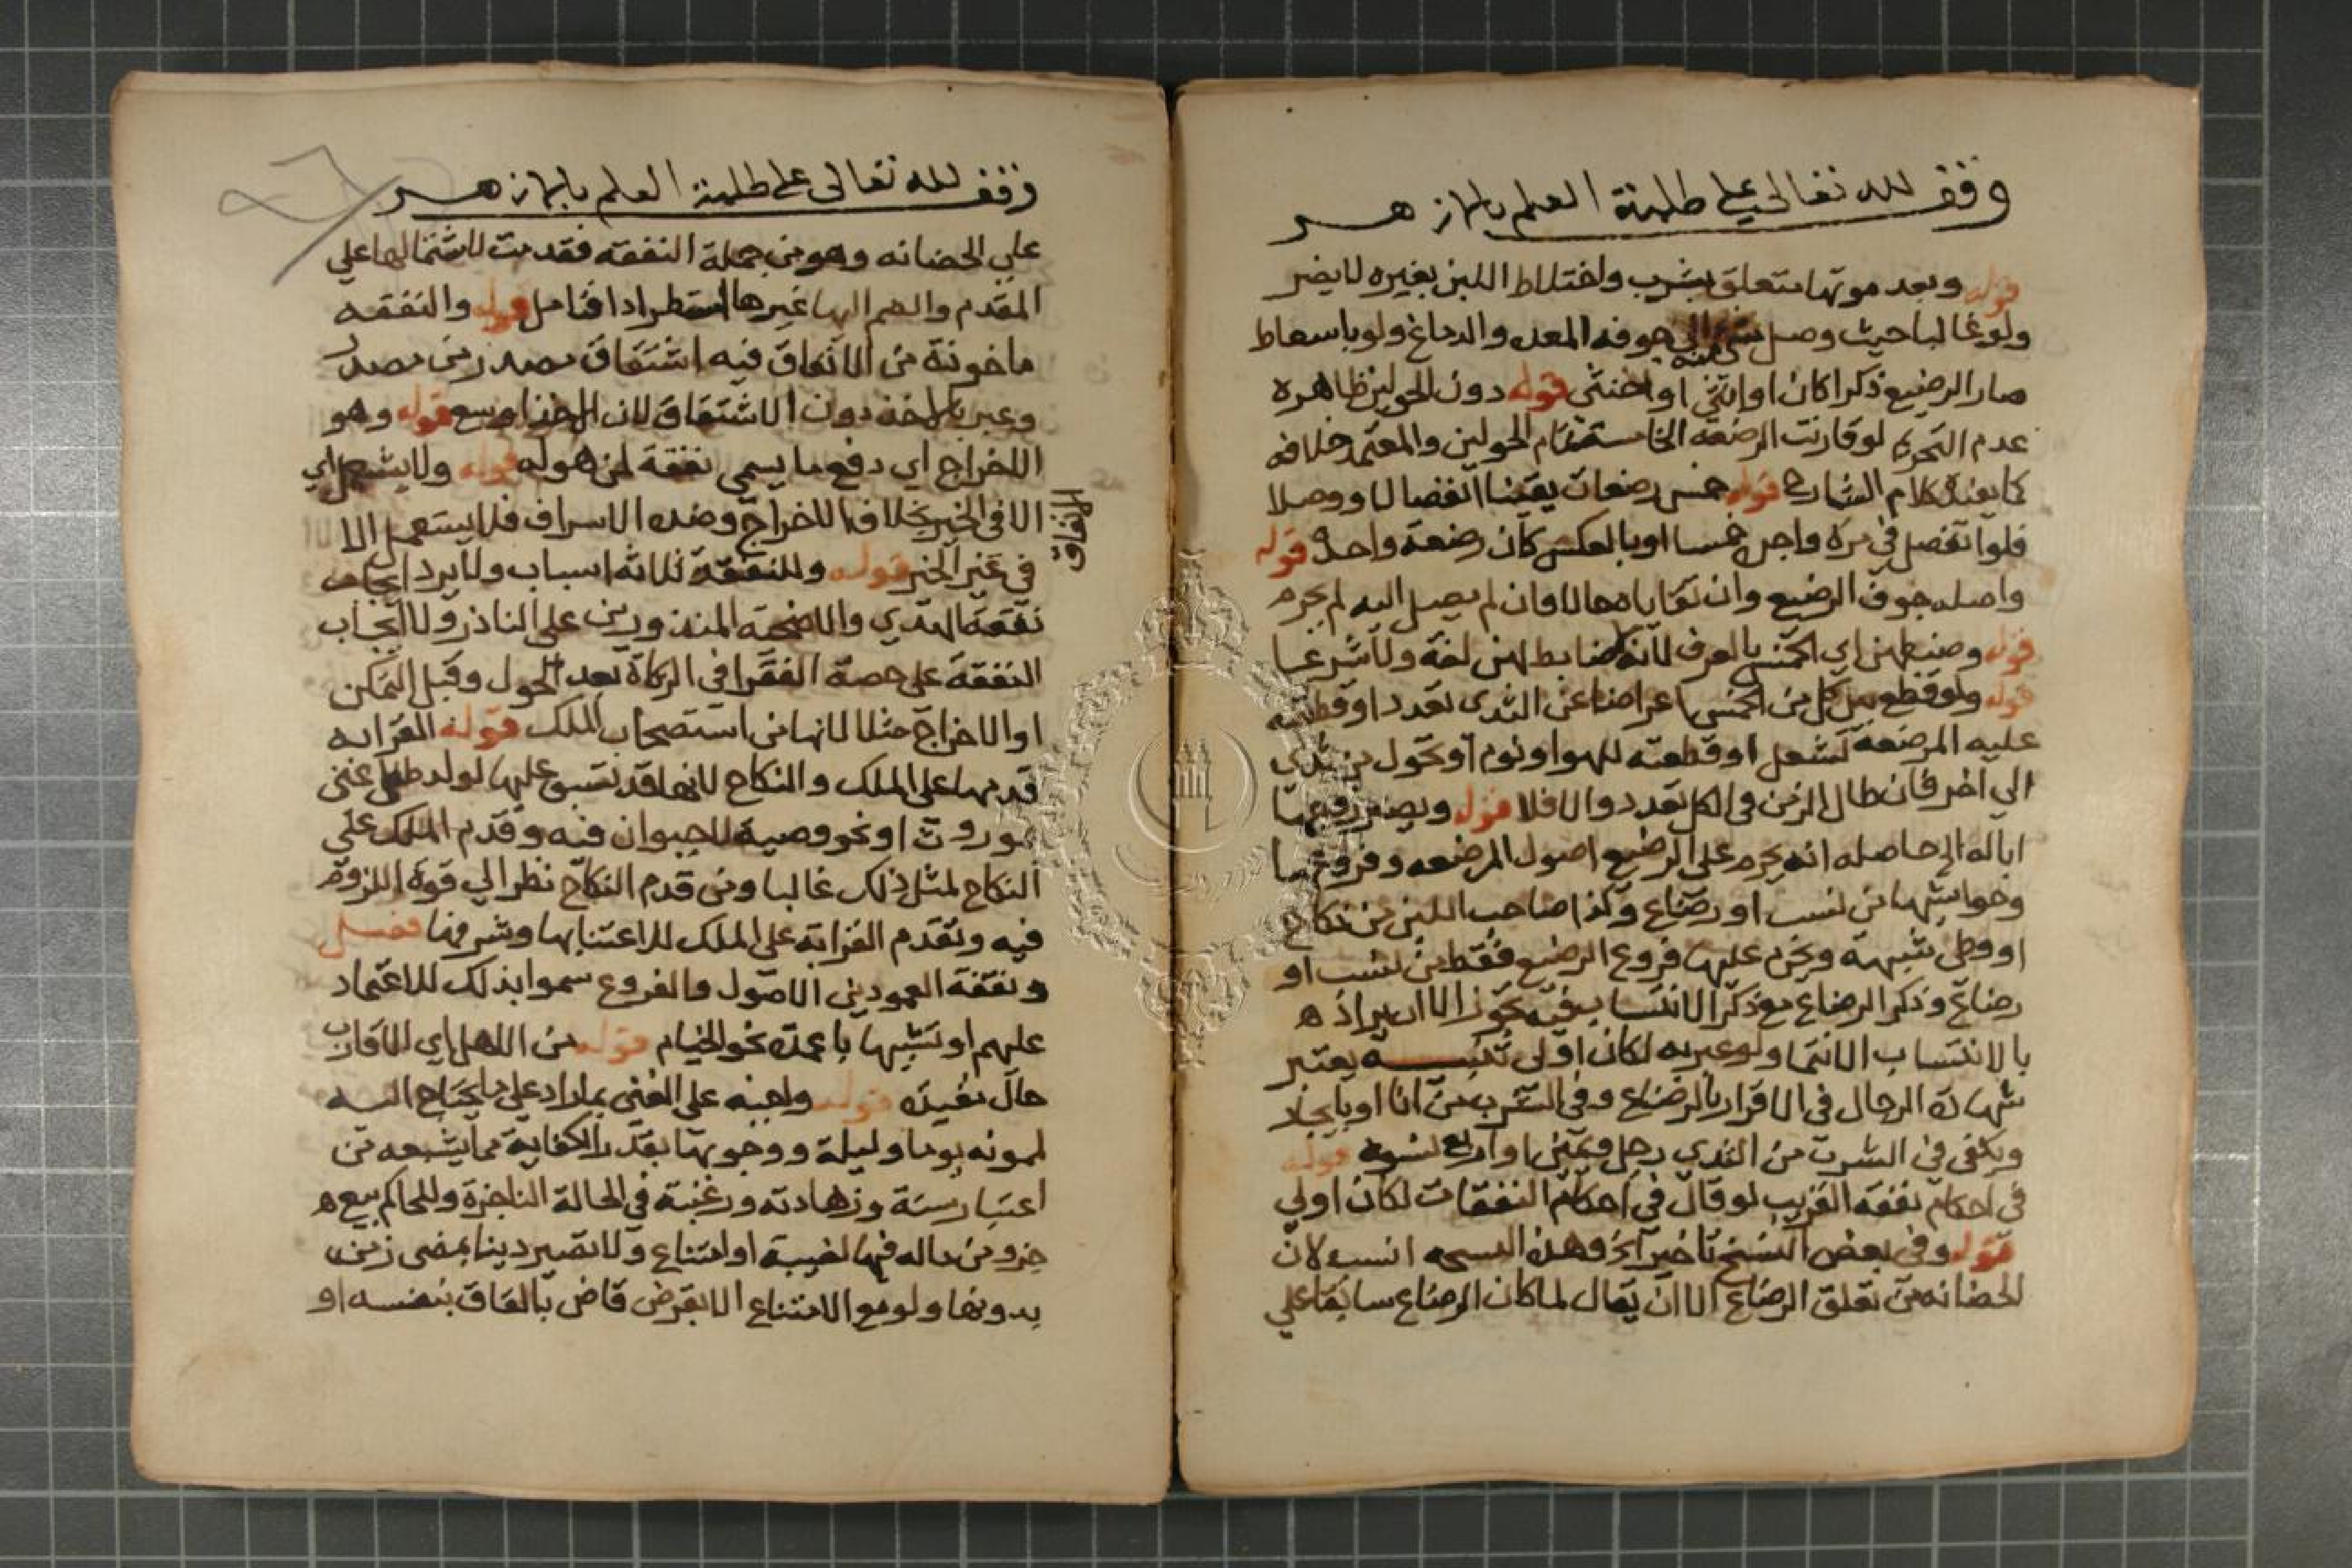 وقف لله تعالى على طلبة العلم بالازهر
قوله وبعد موتها متعلق بشرب واختلاط اللبن بغيره لا يضر
ولو غالبا حيث وصل شي منه الى جوفه المعده والدماغ ولو باسعاط
صار الرضيع ذكرا كان او انثي او خنثى قوله دون الحولين ظاهره
عدم التحريم لو قارنت الرضعه الخامسة تمام الحولين والمعتمد خلافه
كما يفيده كلام الشارح قوله خمس رضعات يقينا انفصالا ووصلا
فلو انفصل في مرة واجر خمسا او بالعكس كان رضعة واحدة قوله
واصله جوف الرضيع وان تقاياه حالا وان لم يصل اليه لم يحرم
قوله وضبطهن اي الخمس بالعرف لانه لا ضابط لهن لغة ولا شرعا
قوله ولو قطع كل من الخمس اعراضا عن الثدى تعدد او قطعته
عليه المرضعة لشغل او قطعته للهو او نوم او تحول من ثدي
الي اخر فان طال الزمن في الكل تعدد والا فلا قوله ويصير زوجها
ابا له الى حاصله انه يحرم على الرضيع اصول المرضعه وفروعها
وحواشيها من نسب او رضاع وكذا صاحب اللبن من نكاح
او وطئ شبهة ويحرم عليها فروع الرضيع فقط من نسب او
رضاع وذكر الرضاع مع ذكر الانتساب فيه تجوز الا ان يراد ه
بالانتساب الانتما ولو عبر به لكان اولى تنبيه يعتبر
شهادة الرجال في الاقرار بالرضاع وفي الشرب من انا او بايجار
ويكفي في الشرب من الثدي رجل ويمين او اربع نسوة قوله
في احكام نفقة القريب لو قال في احكام النفقات لكان اولي
قوله وفي بعض النسخ تاخير الخ وهذه النسخه انسب لان
الحضانه من تعلق الرضاع الا ان يقال لما كان الرضاع سابقا علي
وقف لله تعالى على طلبة العلم بالازهر
علي الحضانه وهو من جملة النفقه فقدمت لاشتمالها علي
المقدم وانضم اليها غيرها استطرادا فتامل قوله والنفقه
ماخوذة من الانفاق فيه اشتقاق مصدر من مصدر
وعبر بالاخذ دون الاشتقاق لان الاخذ اوسع قوله وهو
الاخراج اي دفع ما يسمى نفقة لمن هو له قوله ولا يستعمل اي
الانفاق
الا في الخير بخلاف الاخراج وضده الاسراف فلا يستعمل الا
في غير الخير قوله وللنفقة ثلاثة اسباب ولا يرد ايجاب
نفقة الهدي والاضحية المنذورين على الناذر ولا ايجاب
النفقة على حصة الفقرا في الزكاة بعد الحول وقبل التمكن
او الاخراج مثلا لانها من استصحاب الملك قوله القرابه
قدمها على الملك والنكاح لانها قد تسبق عليها لولد طفل غني
بموروث او نحو وصية للحيوان فيه وقدم الملك علي
النكاح لمثل ذلك غالبا ومن قدم النكاح نظر الي قوة اللزوم
فيه وتقدم القرابة على الملك للاعتنا بها وشرفها فصل
ونفقة العمودين الاصول والفروع سموا بذلك للاعتماد
عليهم او تشبيها باعمدة نحو الخيام قوله من الاهل اي الاقارب
حال مقيده قوله واجبه على الغني بما زاد علي ما يحتاج اليه
لمونه يوما وليلة ووجوبها بقدر الكفاية مما يشبعه من
اعتبار سنه وزهادته ورغبته في الحالة الناجزة وللحاكم بيع ه
جزو من ماله فيها لغيبة او امتناع ولا تصير دينا بمضى زمن
بدونها ولو مع الامتناع الا بقرض قاض بانفاق بنفسه او